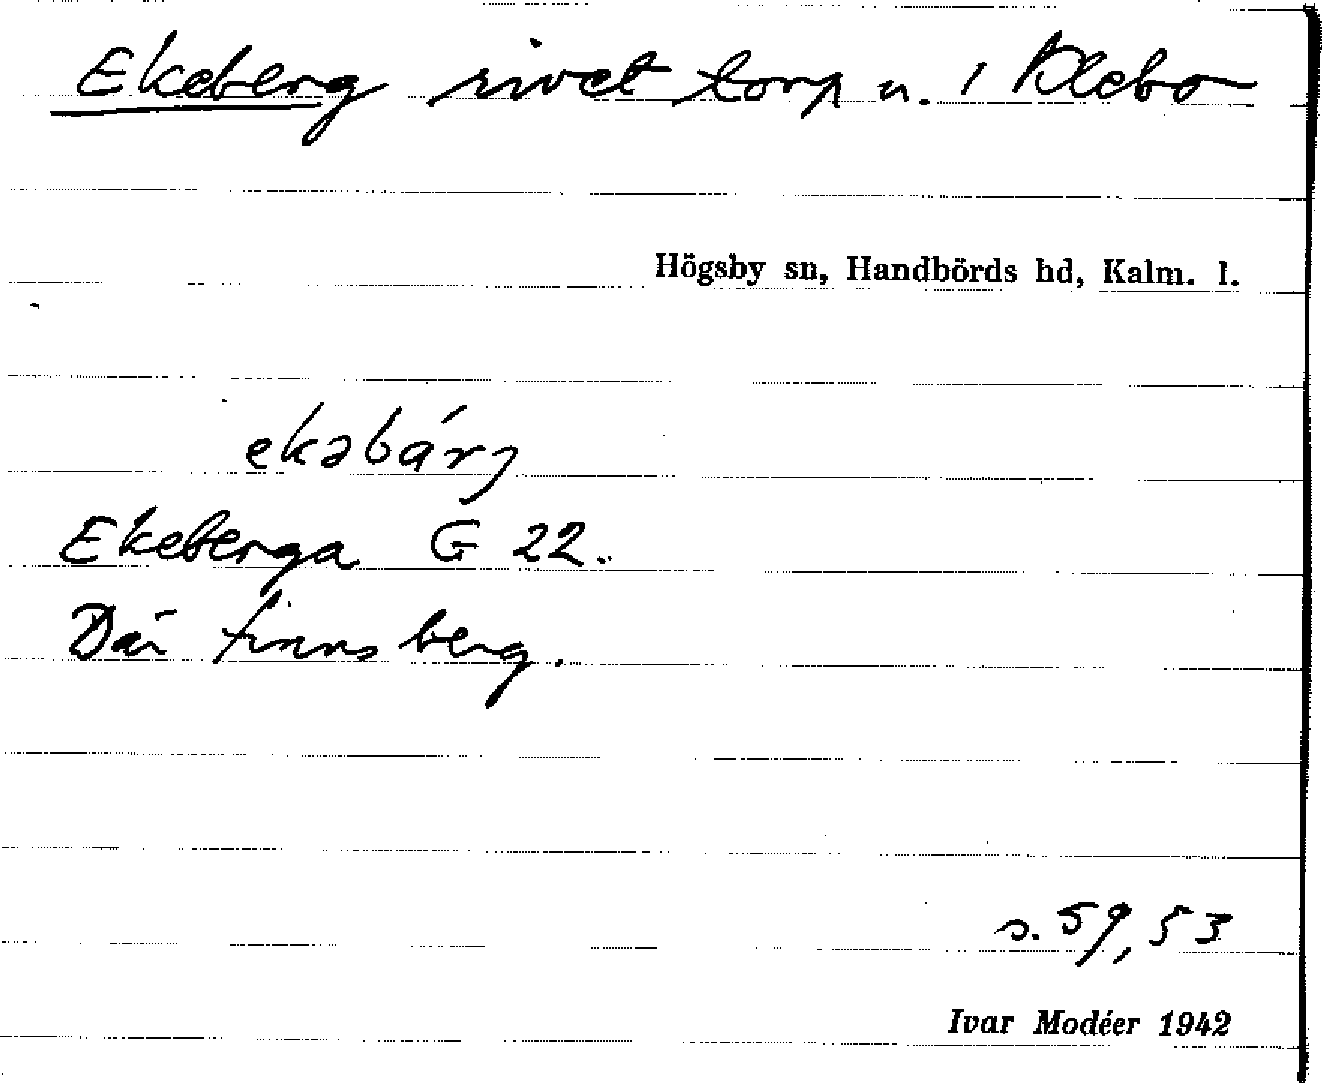 Ekeberg rivet torp u. 1 Klebo
Högsby sn, Handbörds hd, Kalm. l.
ekəbárj
Ekeberga G 22.
Där finns berg.
s. 59, 53
Ivar Modéer 1942